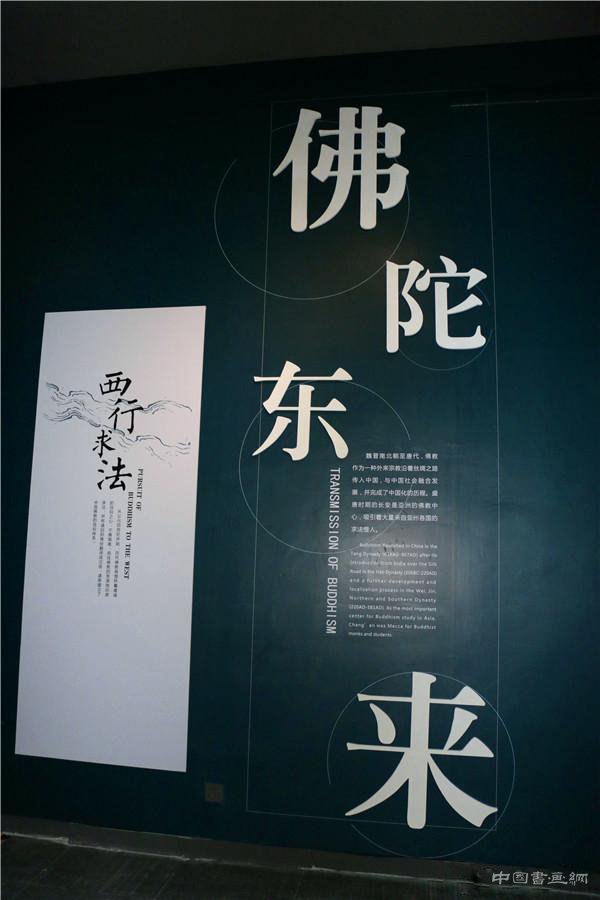 佛
陀
东
来
TRANSMISSION OF BUDDHISM
魏晋南北朝至唐代，佛教
作为一种外来宗教沿着丝绸之路
传入中国，与中国社会融合发
展，并完成了中国化的历程。盛
唐时期的长安是亚洲的佛教中
心，吸引着大量来自亚洲各国的
求法僧人。
Buddhism flourished in China in the
Tang Dynasty (618AD-907AD) after its
introduction from India over the Silk
Road in the Han Dynasty (206BC-220AD)
and a further development and
localization process in the Wei, Jin,
Northern and Southern Dynasty
(220AD-581AD). As the most important
center for Buddhism study in Asia,
Chang'an was Mecca for Buddhist
monks and students.
西行求法
PURSUIT OF
BUDDHISM TO THE WEST
中國書画網